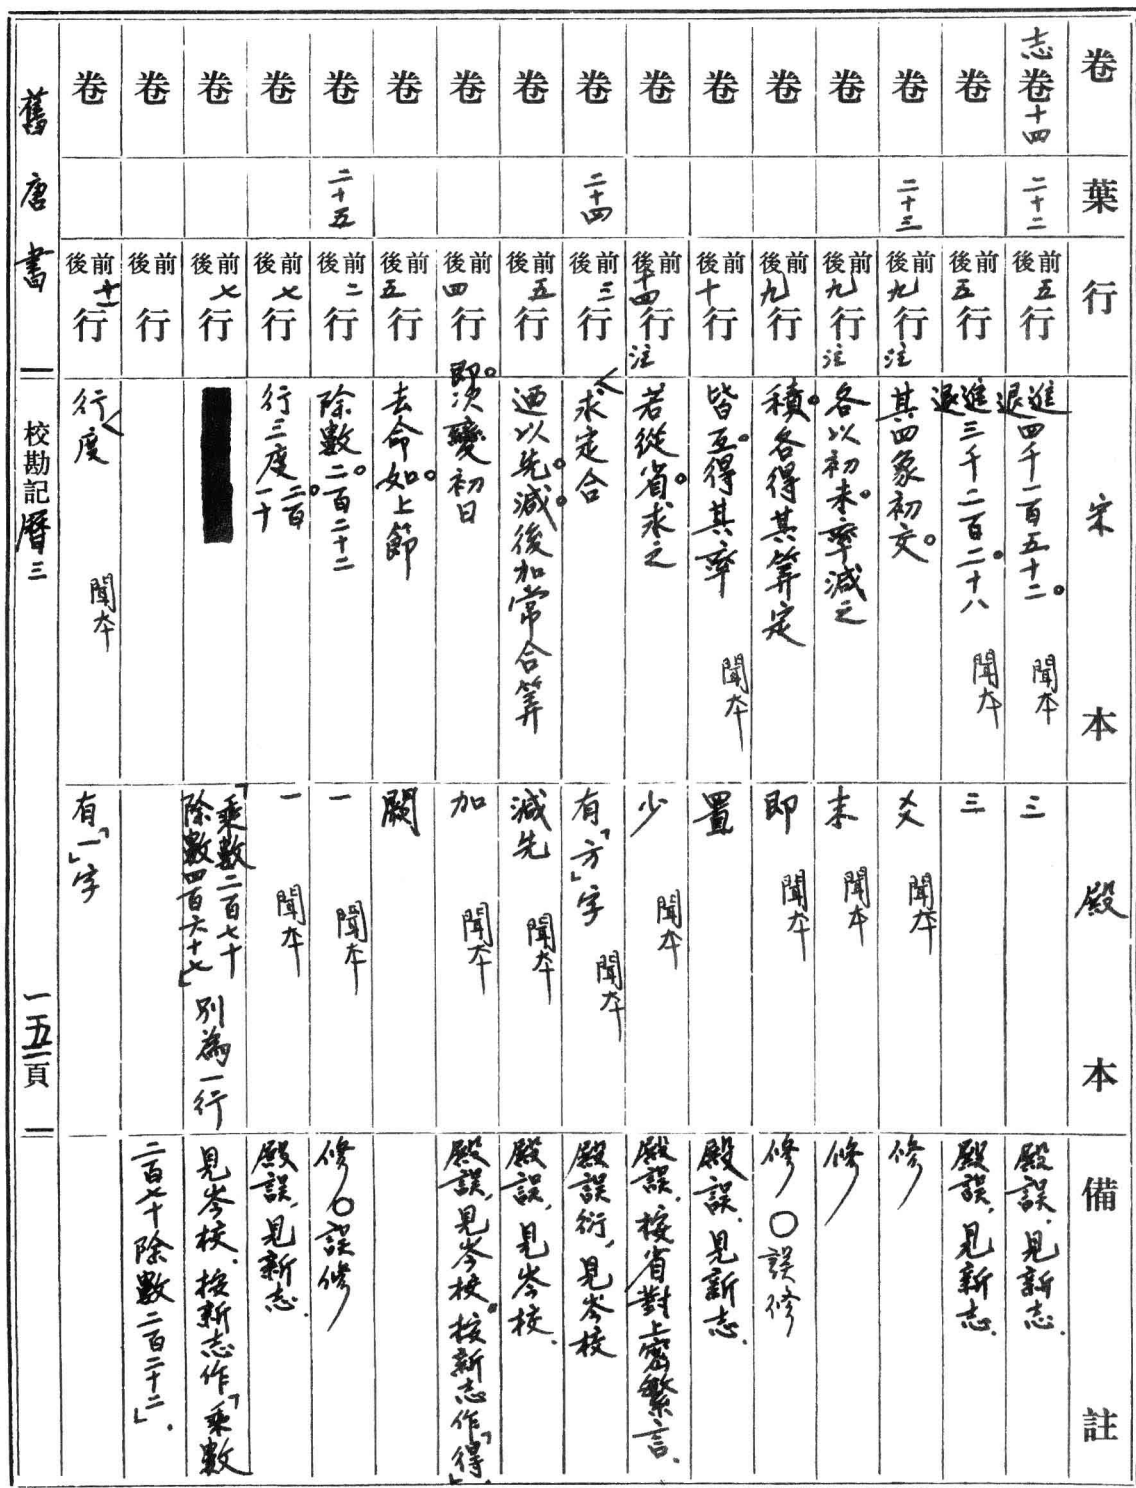 卷 葉 行 宋本 殿本 備註
志卷十四 二十二 前後五行 進退四千一百五十二。 聞本 三 殿誤,見新志.
卷 前後五行 進退三千二百。二十八 聞本 三 殿誤,見新志.
卷 二十三 前後九行注 其四象初交。 爻 聞本 修
卷 前後九行注 各以初末。率減之 末 聞本 修
卷 前後九行 積。各得其筭定 即 聞本 修〇誤修
卷 前後十行 皆互。得其率 聞本 置 殿誤.見新志.
卷 前後十四行注 若從省。求之 少 聞本 殿誤.按省對上密繁言.
卷 二十四 前後三行 求定合 有「方」字 聞本 殿誤衍,見岑校
卷 前後五行 迺以先。減。後加常合筭 減先 聞本 殿誤,見岑校.
卷 前後四行 即。次變初日 加 聞本 殿誤,見岑校。按新志作「得」.
卷 前後五行 去命如。上節 闕
卷 二十五 前後二行 除數二。百二十二 一 聞本 修〇誤修
卷 前後七行 行三度二。百一十 一 聞本 殿誤,見新志.
卷 前後七行 「乘數二百七十除數四百六十七」別為一行 見岑校.按新志作「乘數
卷 前後行 二百七十除數二百二十二」.
卷 前後十一行 行度 聞本 有「一」字
舊唐書 校勘記曆三 一五一頁